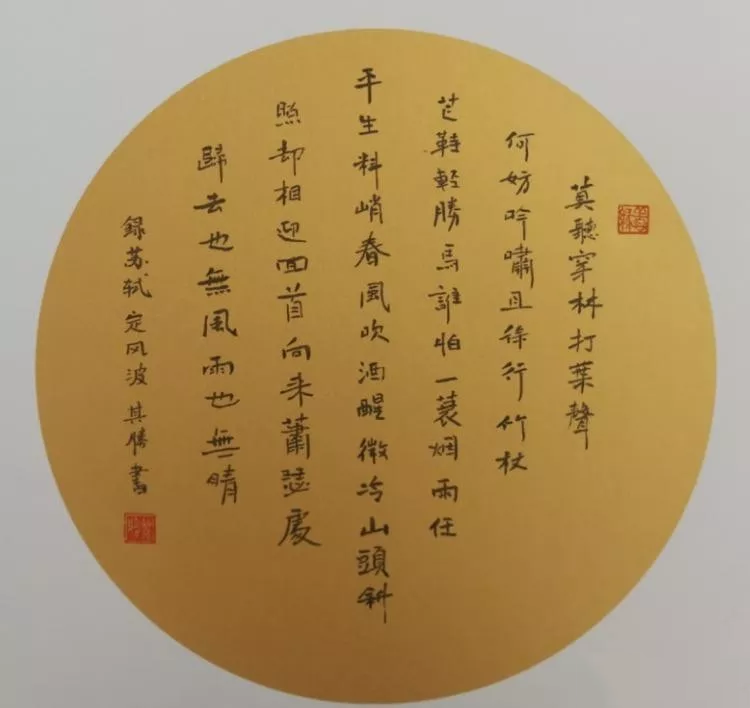 莫聽穿林打葉聲
何妨吟嘯且徐行竹杖
芒鞋輕勝馬誰怕一蓑烟雨任
平生料峭春風吹酒醒微冷山頭斜
照却相迎回首向来蕭瑟處
歸去也無風雨也無晴
録苏轼定风波 其勝書